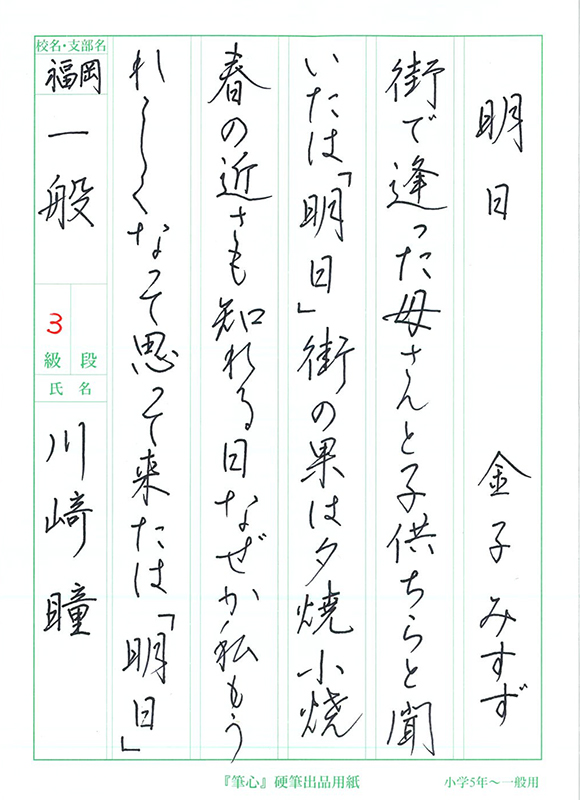 明日 金子みすず
街で逢った母さんと子供ちらと聞
いたは「明日」街の果は夕焼小焼
春の近さも知れる日なぜか私もう
れしくなって思って来たは「明日」
校名・支部名
福岡 一般
3
級 段
氏名
川﨑瞳
『筆心』硬筆出品用紙 小学5年～一般用